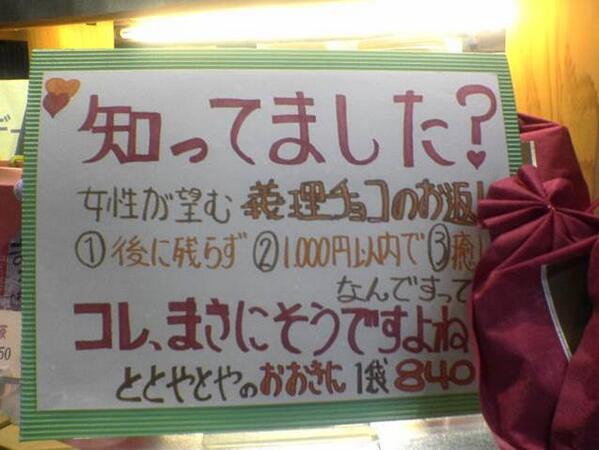 知ってました?
女性が望む 義理チョコのお返し
①後に残らず ②1.000円以内で ③癒し
なんですって
コレ、まさにそうですよね
ととやとやのおおきに 1袋 840
50